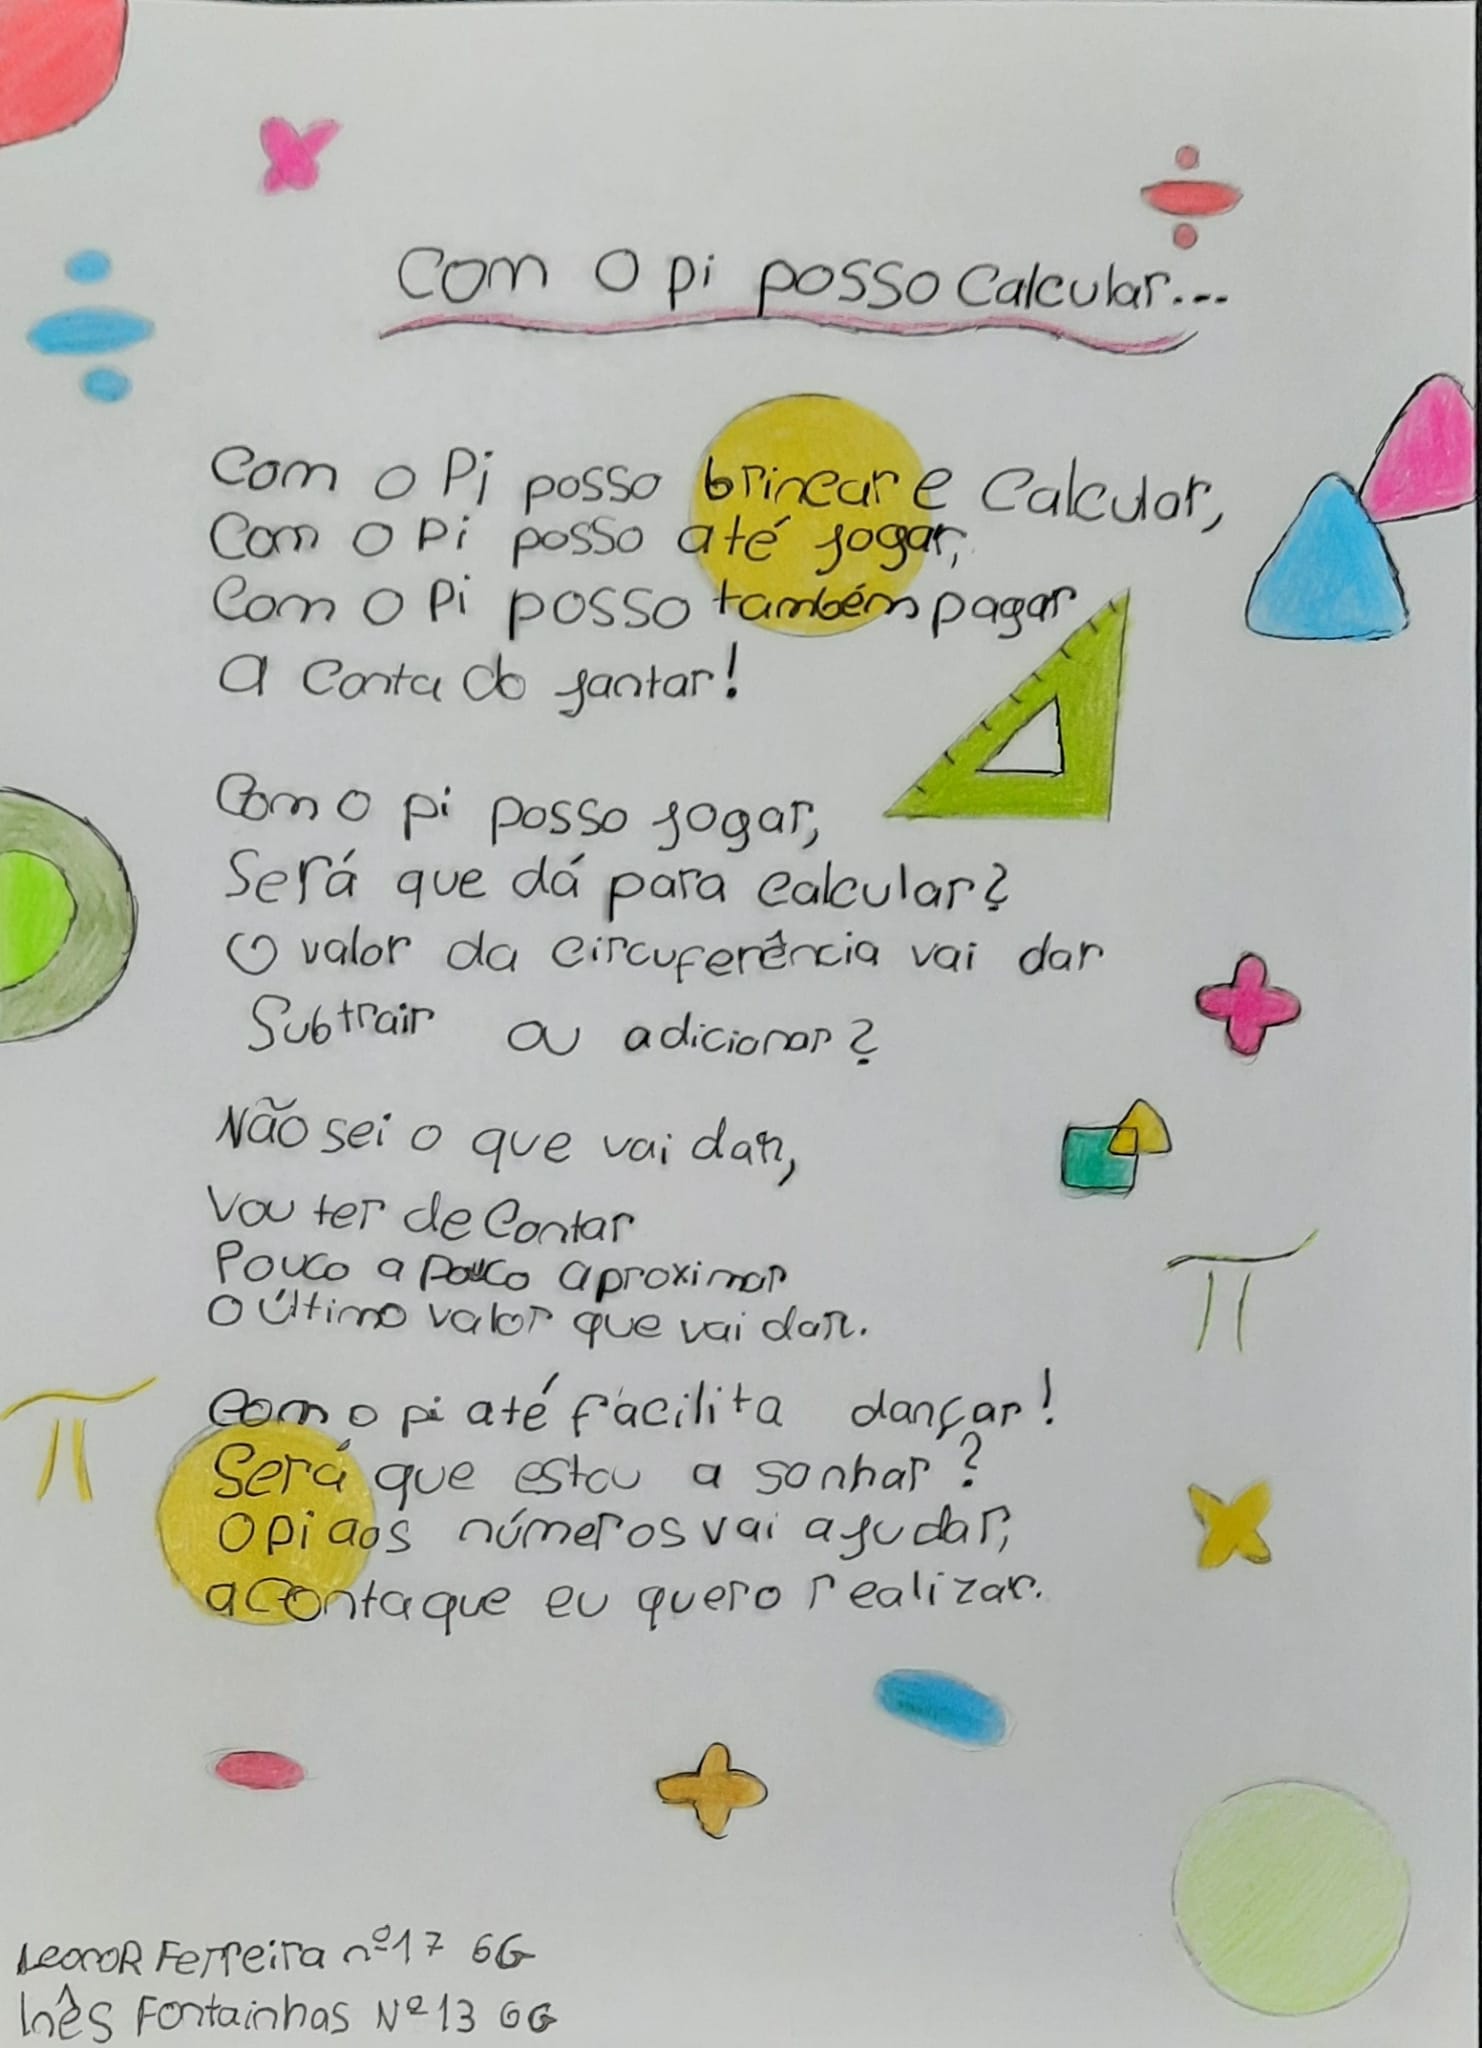 Com o pi posso calcular...
Com o Pi posso brincar e calcular,
Com o pi posso até jogar,
Com o Pi posso também pagar
a conta do jantar!
Com o pi posso jogar,
Será que dá para calcular?
O valor da circuferência vai dar
Subtrair ou adicionar?
Não sei o que vai dar,
Vou ter de contar
Pouco a pouco aproximar
o último valor que vai dar.
Com o pi até facilita dançar!
Será que estou a sonhar?
O pi aos números vai ajudar,
a conta que eu quero realizar.
π
π
Leonor Ferreira nº17 6G
Inês Fontainhas Nº13 6G